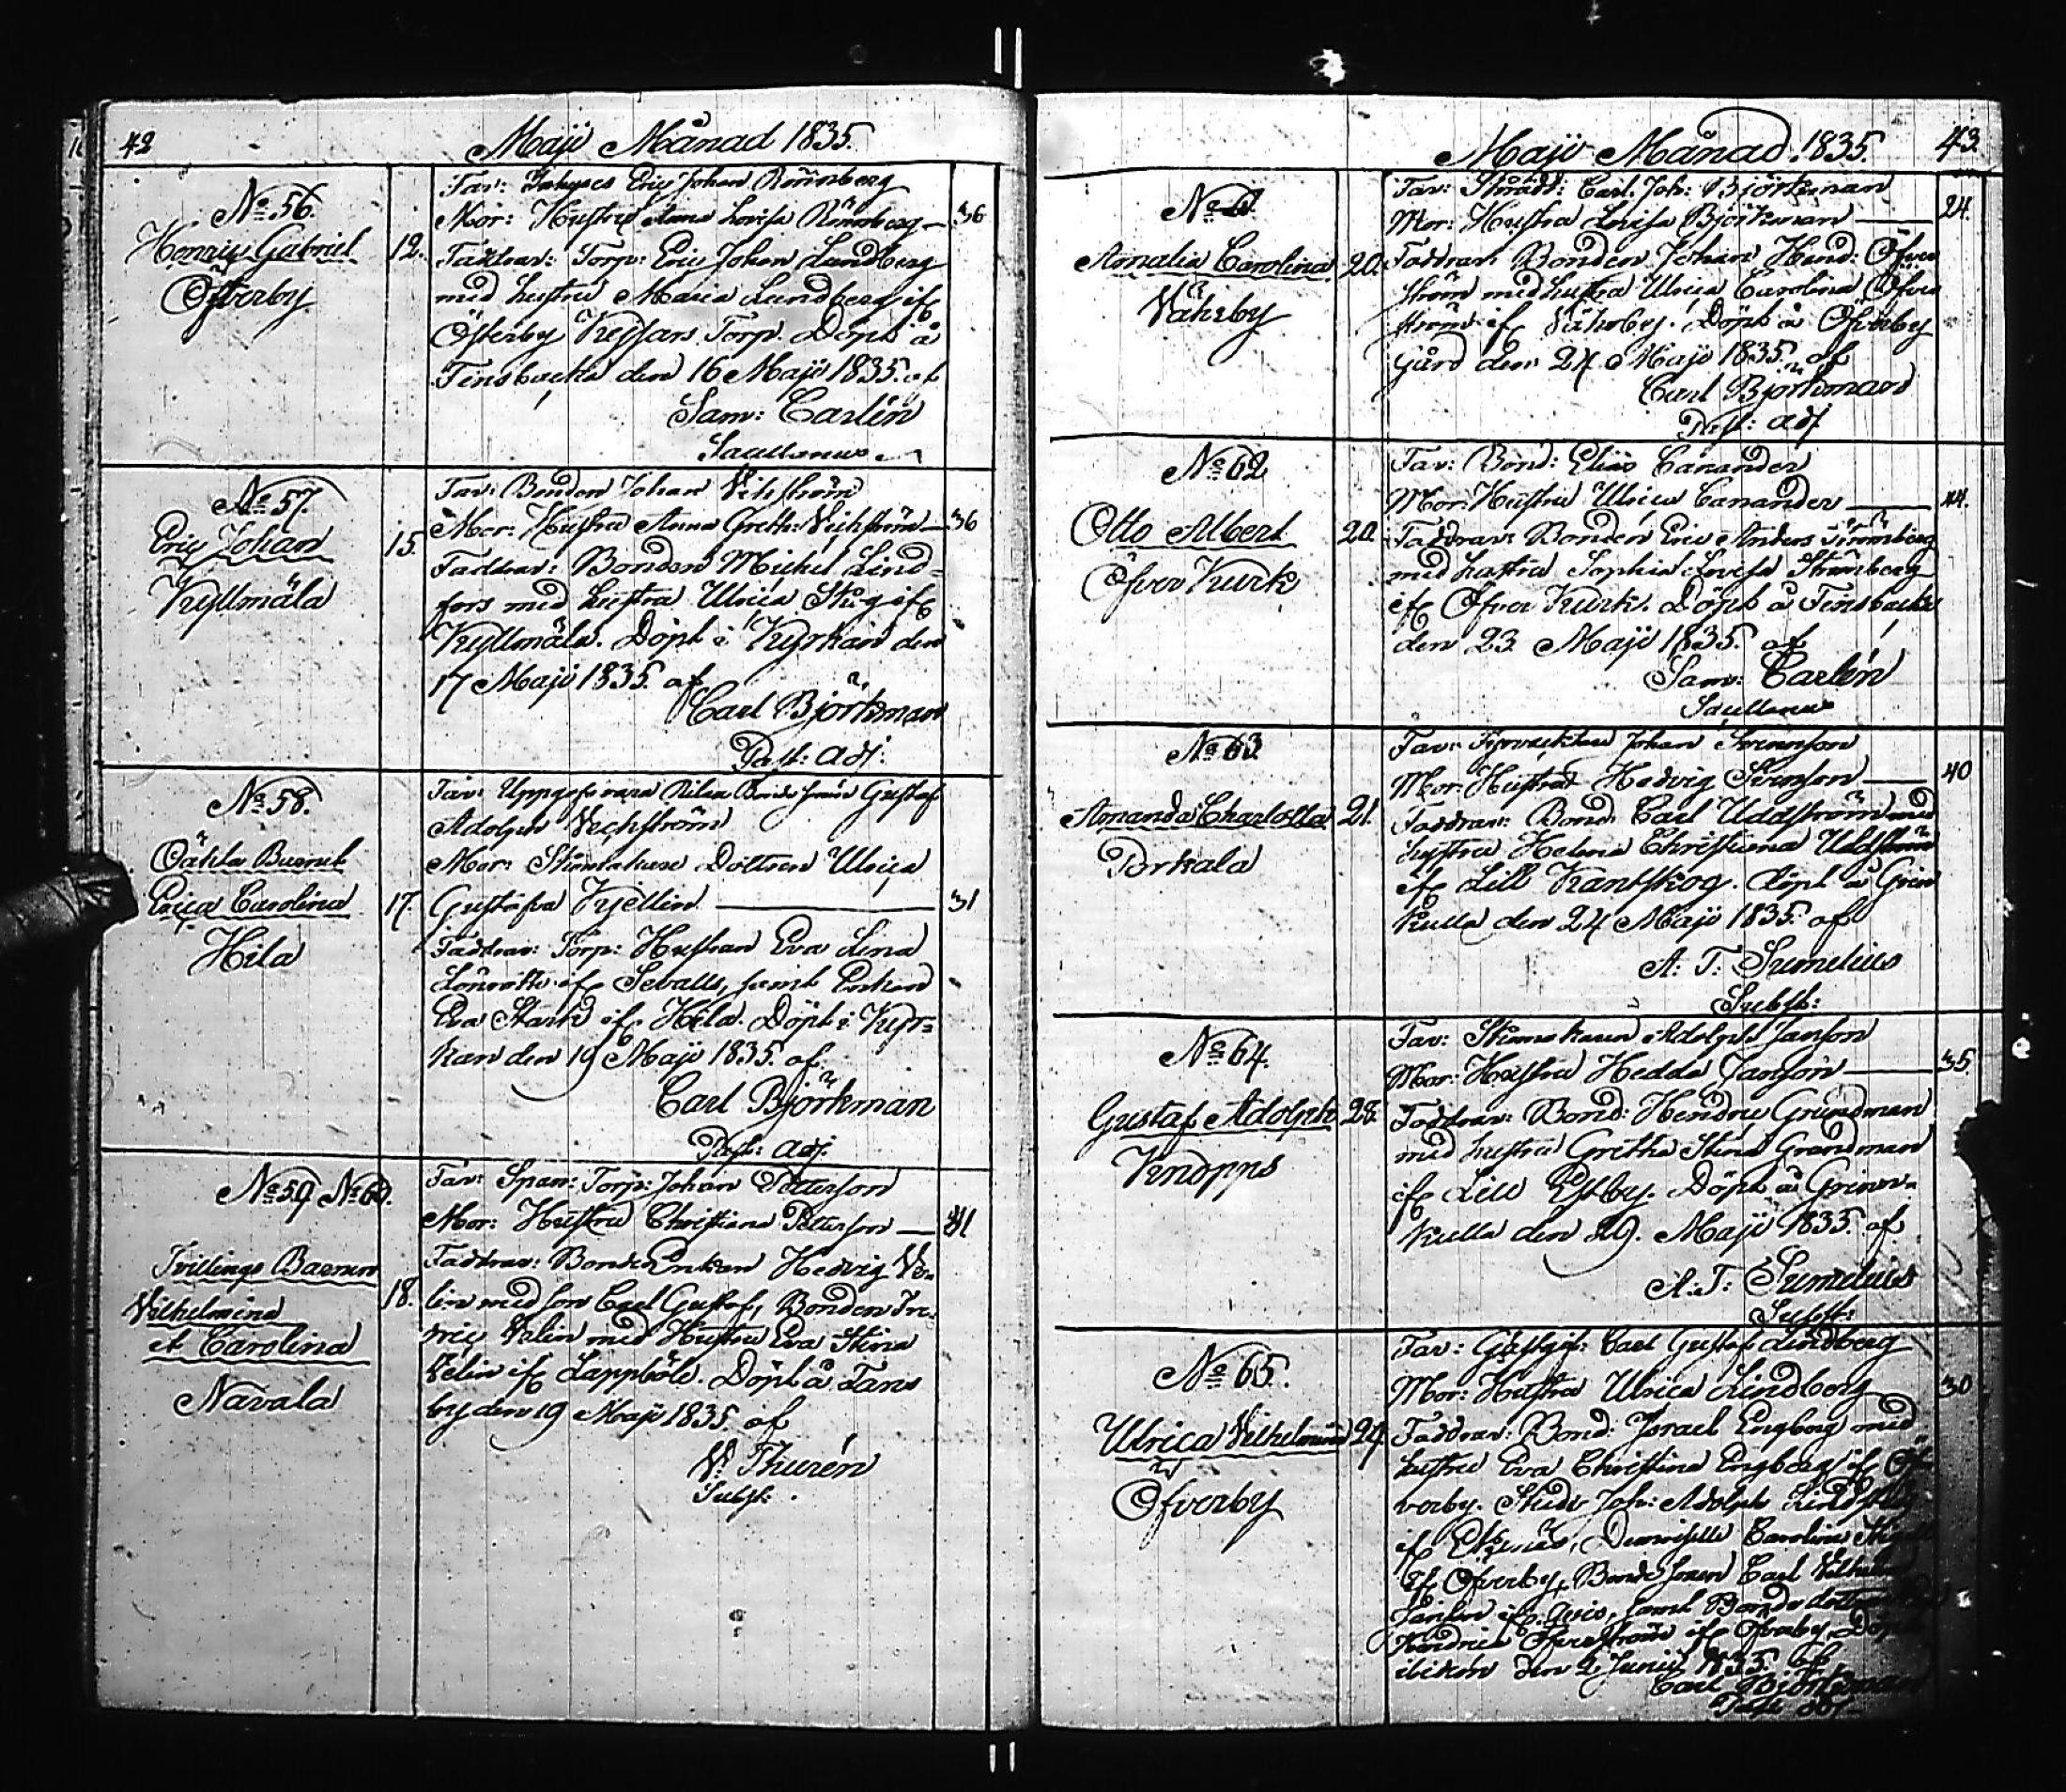 42
Majii Månad 1835.
No 56.
Henric Gabriel
Öfverby.
12.
Far: Eric Johan Rönnberg
Mor: Hustru Anna Lovisa Rönnberg – 36
Faddrar: Torp: Eric Johan Lundberg
med hustru Maria Lundberg ifr
Österby Torp. Döpt å
Finsbacka den 16 Maji 1835. af
Sam: Carlén
Sacellanus
No 57.
Eric Johan
Kyllmäla
15.
Far: Bonden Johan Vikström
Mor: Hustru Anna Greth: Vikström – 36
Faddrar: Bonden Michel Lind-
fors med hustru Ulrica ifr
Kyllmäla. Döpt i Kyrkan den
17 Maji 1835. af
Carl Björkman
Past: adj:
No 58.
Oäkta Barnet
Erica Carolina
Hila
17.
Far: Bonde sonen Gustaf
Adolph
Mor: Dottren Ulrica
Gustafva Kjellin — 31
Faddrar: Torp: Hustran Eva Lena
ifr Sevalls, samt Enkan
Eva Stark ifr Hila. Döpt i Kyr=
kan den 19 Maji 1835 af
Carl Björkman
Past: adj:
No 59 No 60.
Tvillinge Barnen
Vilhelmina
et Carolina
Navala
18.
Far: Torp: Johan Petterson
Mor: Hustru Christiana Petterson —
Faddrar: Bonde Enkan Hedvig Ve-
lin med son Carl Gustaf, Bonden Fre-
dric Velin med Hustru Eva Stina
Velin ifr Lappböle. Döpt å Tans
by den 19 Maji 1835. af
V: Thurén
Subst:
Majii Månad 1835.
43.
Amalia Carolina
Våhrby
20.
Far: Skrädd: Carl Joh: Björkman
Mor: Hustru Lovisa Björkman — 24.
Faddrar: Bonden Johan Hend: Öfver
ström med hustru Ulrica Carolina Öfver
ström ifr Våhrby. Döpt å Öfverby
Gård den 24. Maji 1835. af
Carl Björkman
Past: adj
No 62
Otto Albert
Öfver Kurk
20.
Far: Bond: Elias Canander
Mor: Hustru Ulrica Canander — 44.
Faddrar: Bonden Eric Anders Strömberg
med hustru Sophia Lovisa Strömberg
ifr Öfver Kurk. Döpt å Finsbacka
den 23 Maji 1835. af
Sam: Carlén
Sacellanus
No 63.
Amanda Charlotta
Porkala
21.
Far: Johan Svennson
Mor: Hustru Hedvig Svenson — 40
Faddrar: Bond: Carl Uddström med
hustru Helena Christiana Uddström
ifr Lill Kantskog. Döpt å Grin
kulla den 24 Maji 1835. af
A: T: Sumelius
Subst:
No 64.
Gustaf Adolph
Knopps
28.
Far: Adolph Janson
Mor: Hustru Hedda Janson — 35
Faddrar: Bond: Hendric Grundman
med hustru Gretha Stina Grundman
ifr Lill Estby. Döpt å Grinn-
kulla den 29. Maji 1835. af
A: T: Sumelius
Subst:
No 65.
Ulrica Vilhelmina
Öfverby
29.
Far: Gästgif: Carl Gustaf Lindberg
Mor: Hustru Ulrica Lindberg 30
Faddrar: Bond: Israel Engberg med
hustru Eva Christina Engberg ifr Öf-
verby. Stud: Joh: Adolph
ifr Ekenäs, Demoiselle Carolina
ifr Öfverby, Bonde sonen Carl Vilhelm
ifr samt Bonde dottren
Öfverström ifr Öfverby. Döpt
den 2 Junii 1835. af
Carl Björkman
Past: adj